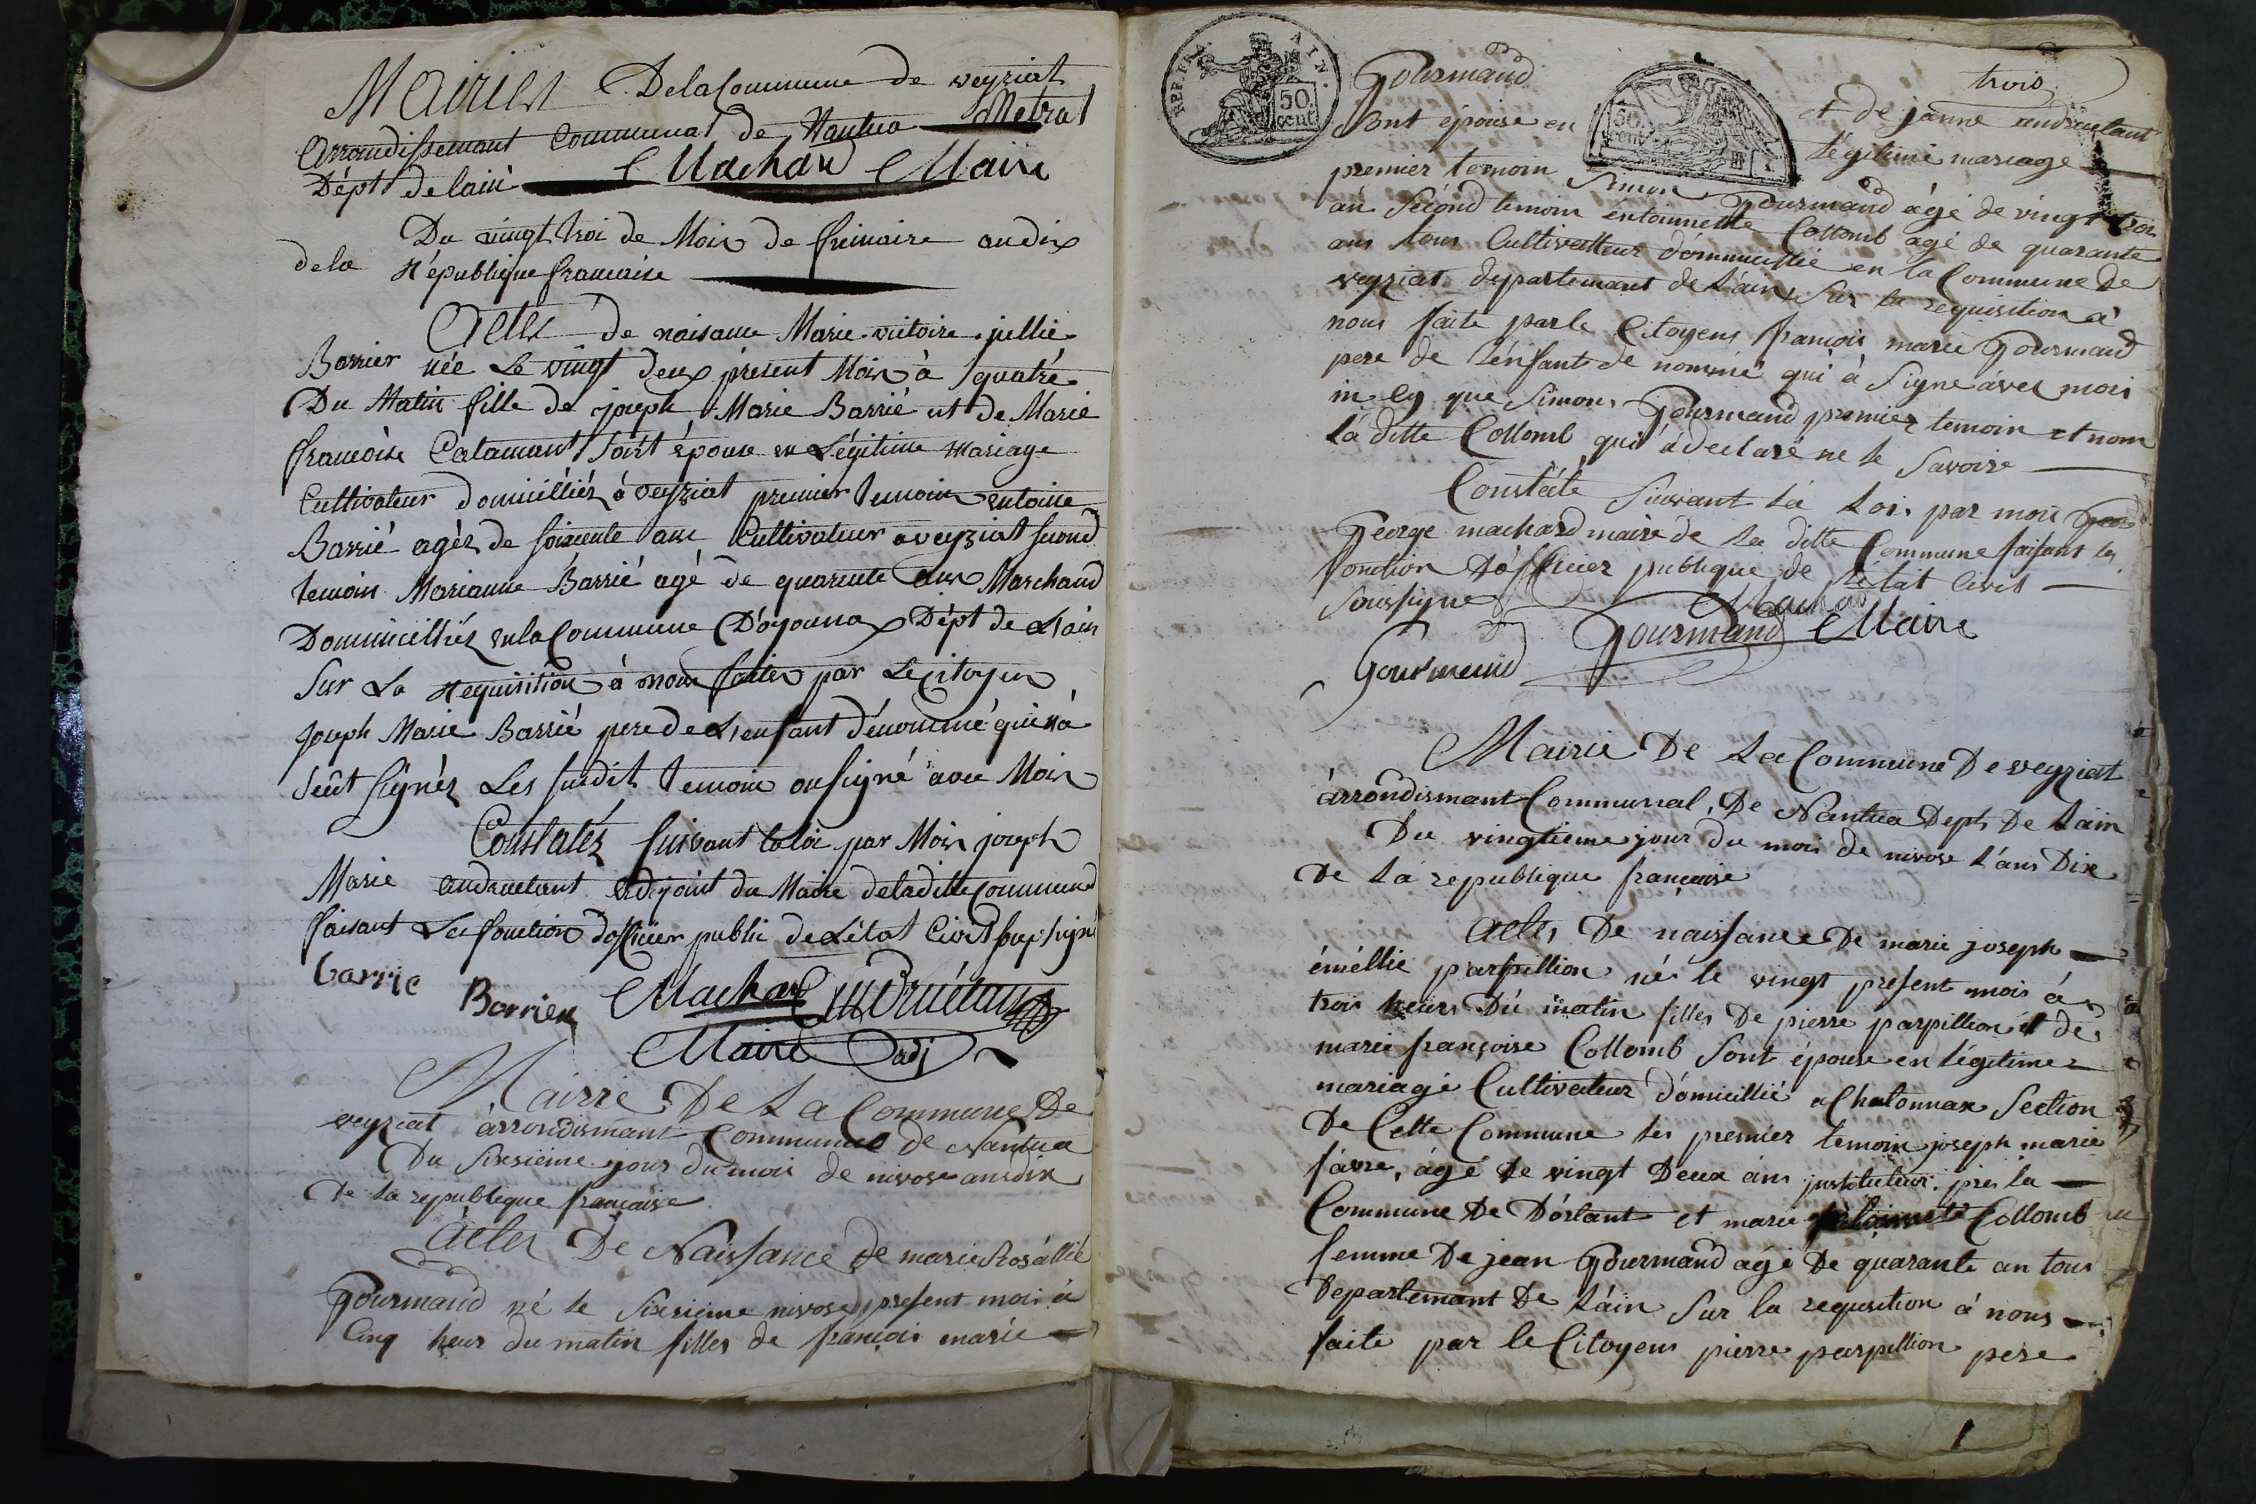 Mairies De la Commune de veyziat
arrondissemant Communal de Nantua Metral
Dépt de lain Machard Maire
Du vingt troi de Mois de frimaire an dix
de la République francaise
Actes de naisanse Marie victoire jullie
Barrier née Le vingt deux présent Mois à quatre
Du Matin fille de joseph Marie Barrié et de Marie
francoise Catamant sont épouse en Légitime Mariage
Cultivateur domicilliéz à veyziat premier temoin entoine
Barrié agéz de soixente ans Cultivateur a veyziat second
temoin Marianne Barrié agé de quarente ans Marchand
Dominicilliéz en la Commune D'oyonnax Dépt de L'ain
Sur La Requisition à nous faites par Le Citoyen
Joseph Marie Barrié pere de L'enfant dénommé qui n'à
seût signéz Les susdit temoin on signé avec Mois
Constatéz suivant la loi par Mois joseph
Marie andruetant adjoint du Maire de la ditte Commune
faisant Les fonction d'officier public de L'état Civil soussigné
barrie Barrier Machard andruetant
Maire adj
Mairie De La Commune De
veyziat arrondismant Communal de Nantua
Du sixsieme jour du mois de nivose an dix
De la republique française
Actes De Naissance de marie Rosallié
Gourmand né le sixsieme nivose present mois à
Cinq heur du matin filles de françois marie
REP. FRA. AIN.
50 cent
trois
Gourmand et de janne andruetant
Sont épouse en légitime mariage
premier temoin Simon Gourmand âgé de vingt trois
an second temoin entoinnette Collomb agé de quarante
ans tous Cultivatteur d'omicillié en la Commune De
veyziat departemant de L'ain, Sur la requisition à
nous faite par le Citoyens françois marie Gourmand
pere de l'énfant de nommé qui à Signe avec mois
Simon Gourmand premier temoin et nom
la ditte Collomb qui a declaré ne le savoire
Constaté suivant la Loi par mois
George machard maire de la ditte Commune faisant les
fonction D'officier publique de l'état Civil
soussigne Machard
Gourmand Gourmand Maire
Mairie De La Commune De veyziat
arrondismant Communal, De Nantua Dept De Lain
Du vingtieme jour du mois de nivose L'ans Dix
De La republique française
Actes De naissance De marie joseph
éméllie parpillion né le vingt present mois à
trois heurs Du matin filles De pierre parpillion et de
marie françoise Collomb Sont épouse en légitime
mariage Cultivateur d'omicillié a Chatonnax Section
De Cette Commune les premier temoin joseph marie
favre, âgé De vingt Deux ans justituteur près la
Commune De D'ortant et marie Collomb
femme De jean Gourmand agé De quarante an tous
Departemant De L'ain Sur la requisition à nous
faite par le Citoyens pierre parpillion pere